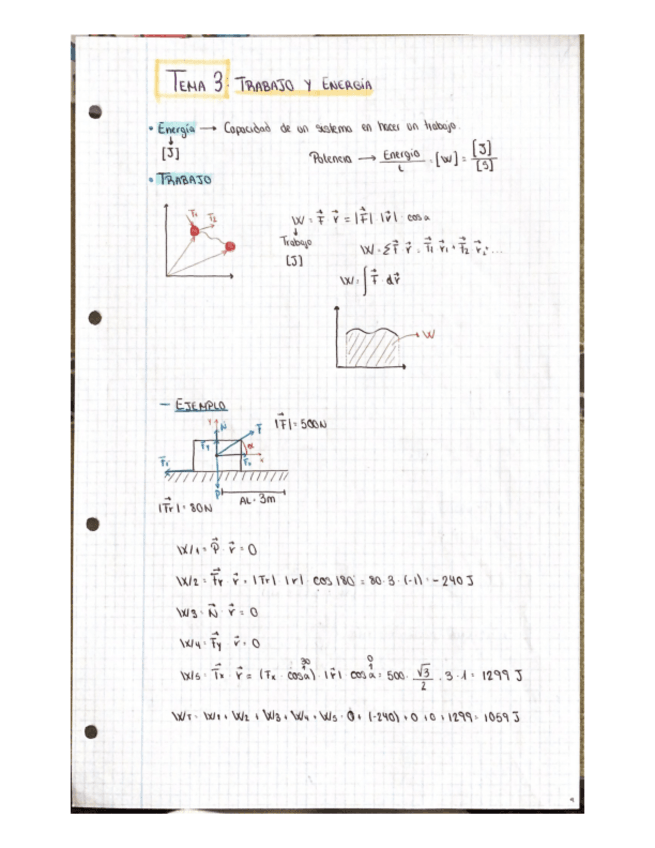 TEMA 3: TRABAJO Y ENERGÍA
• Energía → Capacidad de un sistema en hacer un trabajo.
[J]
Potencia → Energía / t = [W] = [J]/[S]
• TRABAJO
F₁ F₂
W = F⃗ · r⃗ = |F⃗| · |r⃗| · cos α
Trabajo
[J]
W = Σ F⃗ · r⃗ = F⃗₁ · r⃗₁ + F⃗₂ · r⃗₂ + ...
W = ∫ F⃗ · dr⃗
W
— EJEMPLO
|F⃗| = 500N
Y N F⃗
Fy α
Fr Fx x
P ΔL = 3m
|F⃗r| = 80N
W₁ = P⃗ · r⃗ = 0
W₂ = F⃗r · r⃗ = |Fr| · |r| · cos 180° = 80 · 3 · (-1) = -240 J
W₃ = N⃗ · r⃗ = 0
W₄ = F⃗y · r⃗ = 0
30 0
W₅ = F⃗x · r⃗ = (Fx · cos α) · |r⃗| · cos α = 500 · √3/2 · 3 · 1 = 1299 J
WT = W₁ + W₂ + W₃ + W₄ + W₅ = 0 + (-240) + 0 + 0 + 1299 = 1059 J